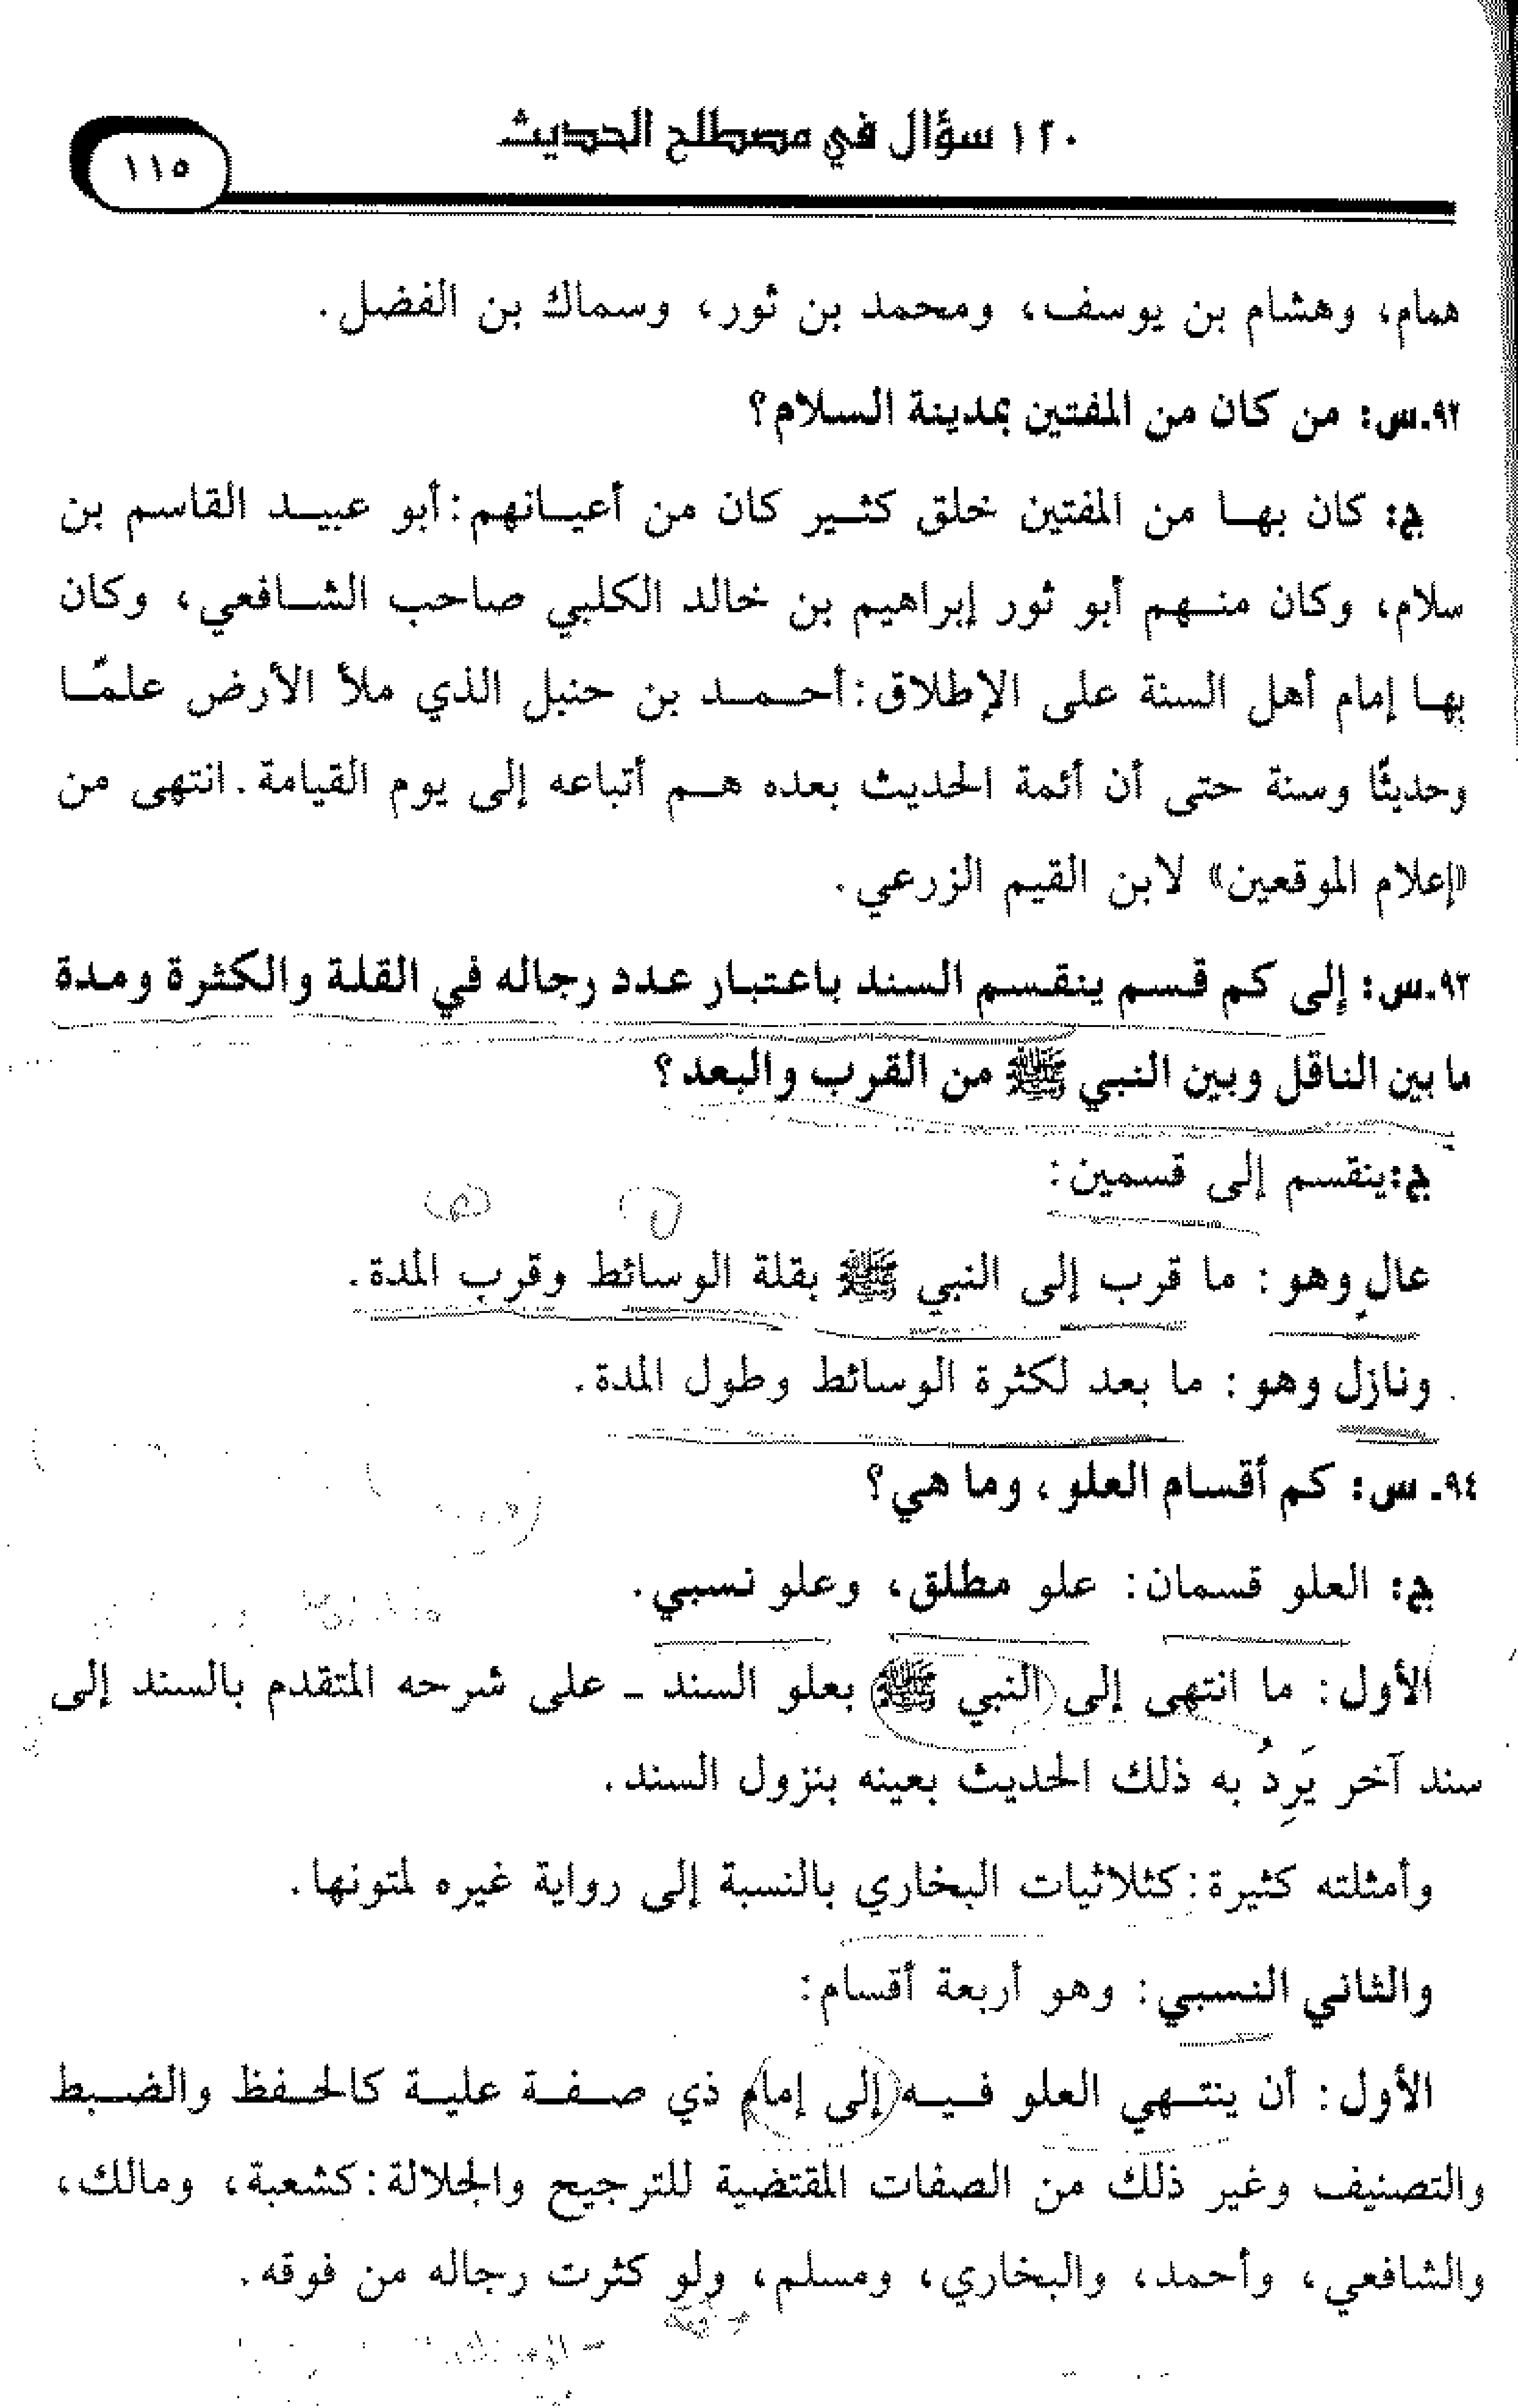 ١٢٠ سؤال في مصطلح الحديث
١١٥
همام، وهشام بن يوسف، ومحمد بن ثور، وسماك بن الفضل.
٩٢.س: من كان من المفتين بمدينة السلام؟
ج: كان بها من المفتين خلق كثير كان من أعيانهم: أبو عبيد القاسم بن
سلام، وكان منهم أبو ثور إبراهيم بن خالد الكلبي صاحب الشافعي، وكان
بها إمام أهل السنة على الإطلاق: أحمد بن حنبل الذي ملأ الأرض علمًا
وحديثًا وسنة حتى أن أئمة الحديث بعده هم أتباعه إلى يوم القيامة. انتهى من
«إعلام الموقعين» لابن القيم الزرعي.
٩٣.س: إلى كم قسم ينقسم السند باعتبار عدد رجاله في القلة والكثرة ومدة
ما بين الناقل وبين النبي ﷺ من القرب والبعد؟
ج: ينقسم إلى قسمين:
عالٍ وهو: ما قرب إلى النبي ﷺ بقلة الوسائط وقرب المدة.
ونازل وهو: ما بعد لكثرة الوسائط وطول المدة.
٩٤. س: كم أقسام العلو، وما هي؟
ج: العلو قسمان: علو مطلق، وعلو نسبي.
الأول: ما انتهى إلى النبي ﷺ بعلو السند - على شرحه المتقدم بالسند إلى
سند آخر يَرِدُ به ذلك الحديث بعينه بنزول السند.
وأمثلته كثيرة: كثلاثيات البخاري بالنسبة إلى رواية غيره لمتونها.
والثاني النسبي: وهو أربعة أقسام:
الأول: أن ينتهي العلو فيه إلى إمام ذي صفة علية كالحفظ والضبط
والتصنيف وغير ذلك من الصفات المقتضية للترجيح والجلالة: كشعبة، ومالك،
والشافعي، وأحمد، والبخاري، ومسلم، ولو كثرت رجاله من فوقه.